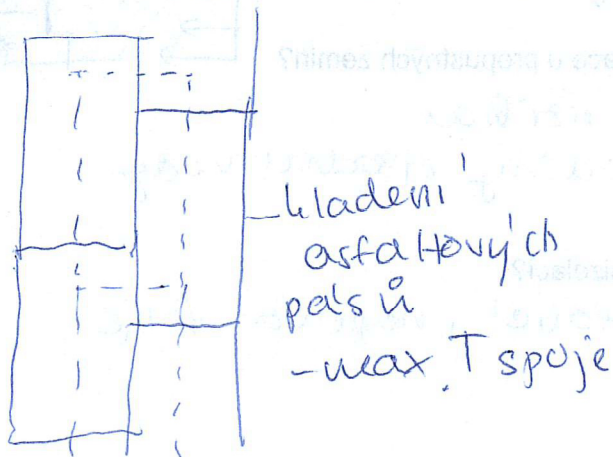 kladení
asfaltových
pásů
- max. T spoje